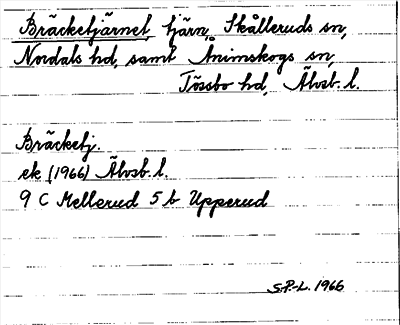 Bräcketjärnet, tjärn, Skålleruds sn,
Nordals hd, samt Ånimskogs sn,
Tössbo hd, Älvsb. l.
Bräcketj.
ek (1966) Älvsb. l.
9 C Mellerud 5 b Upperud
S.P.-L. 1966